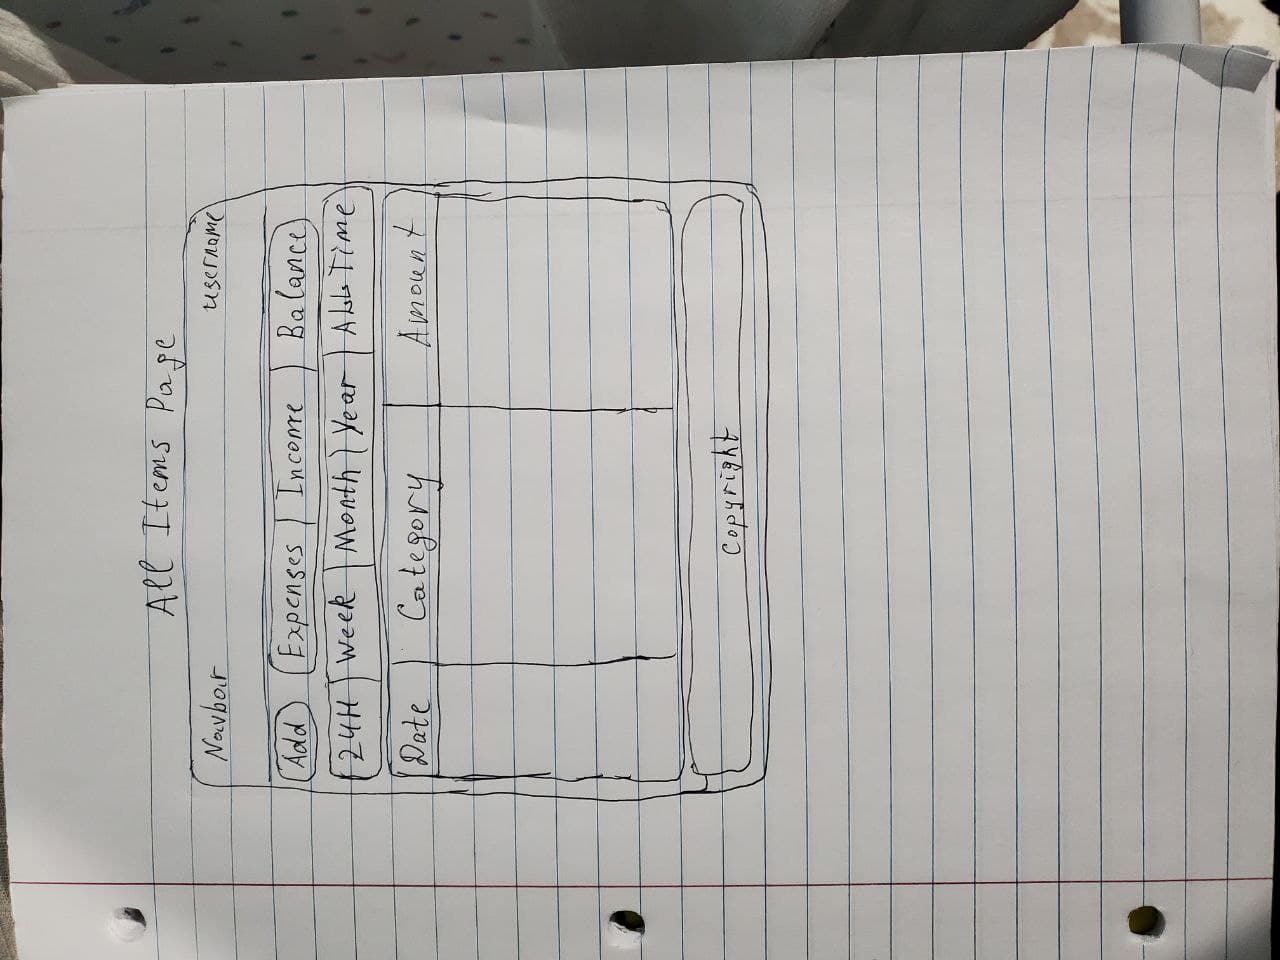 All Items Page
Navbar username
Add Expenses Income Balance
24H Week Month Year All Time
Date Category Amount
Copyright